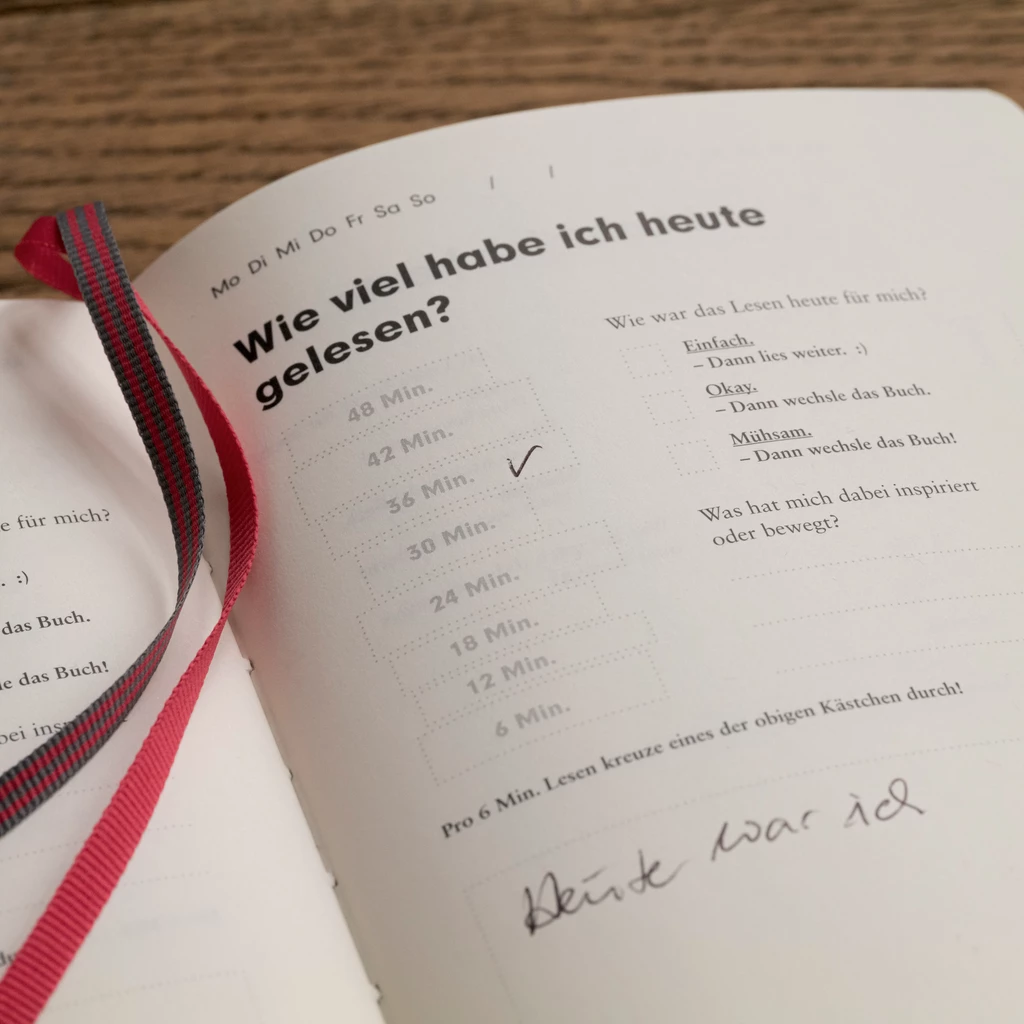 e für mich?
. :)
das Buch.
le das Buch!
bei insp
Mo Di Mi Do Fr Sa So / /
Wie viel habe ich heute
gelesen?
48 Min.
42 Min.
36 Min. ✓
30 Min.
24 Min.
18 Min.
12 Min.
6 Min.
Pro 6 Min. Lesen kreuze eines der obigen Kästchen durch!
Wie war das Lesen heute für mich?
Einfach.
– Dann lies weiter. :)
Okay.
– Dann wechsle das Buch.
Mühsam.
– Dann wechsle das Buch!
Was hat mich dabei inspiriert
oder bewegt?
Heute war ich